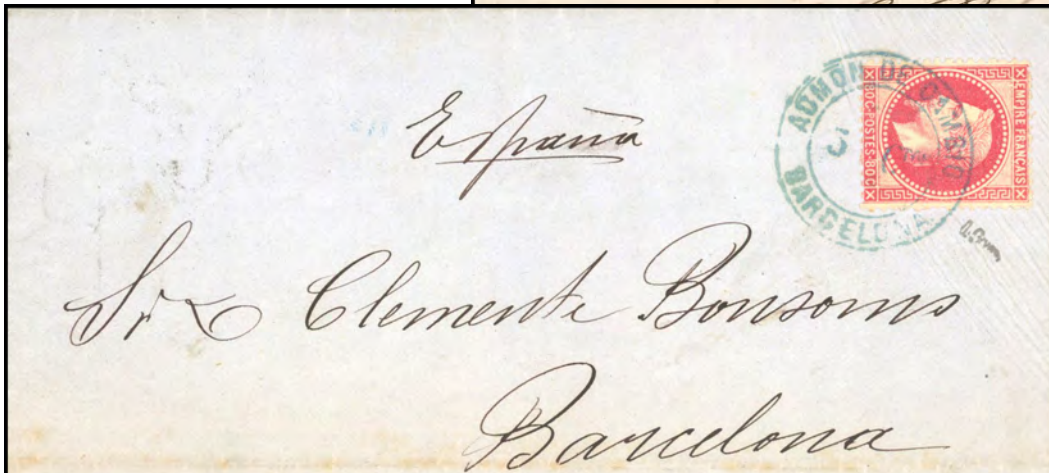 España
ADMON DE CAMBIO
BARCELONA
EMPIRE FRANCAIS
80C·POSTES·80C
Clemente Bonsoms
Barcelona